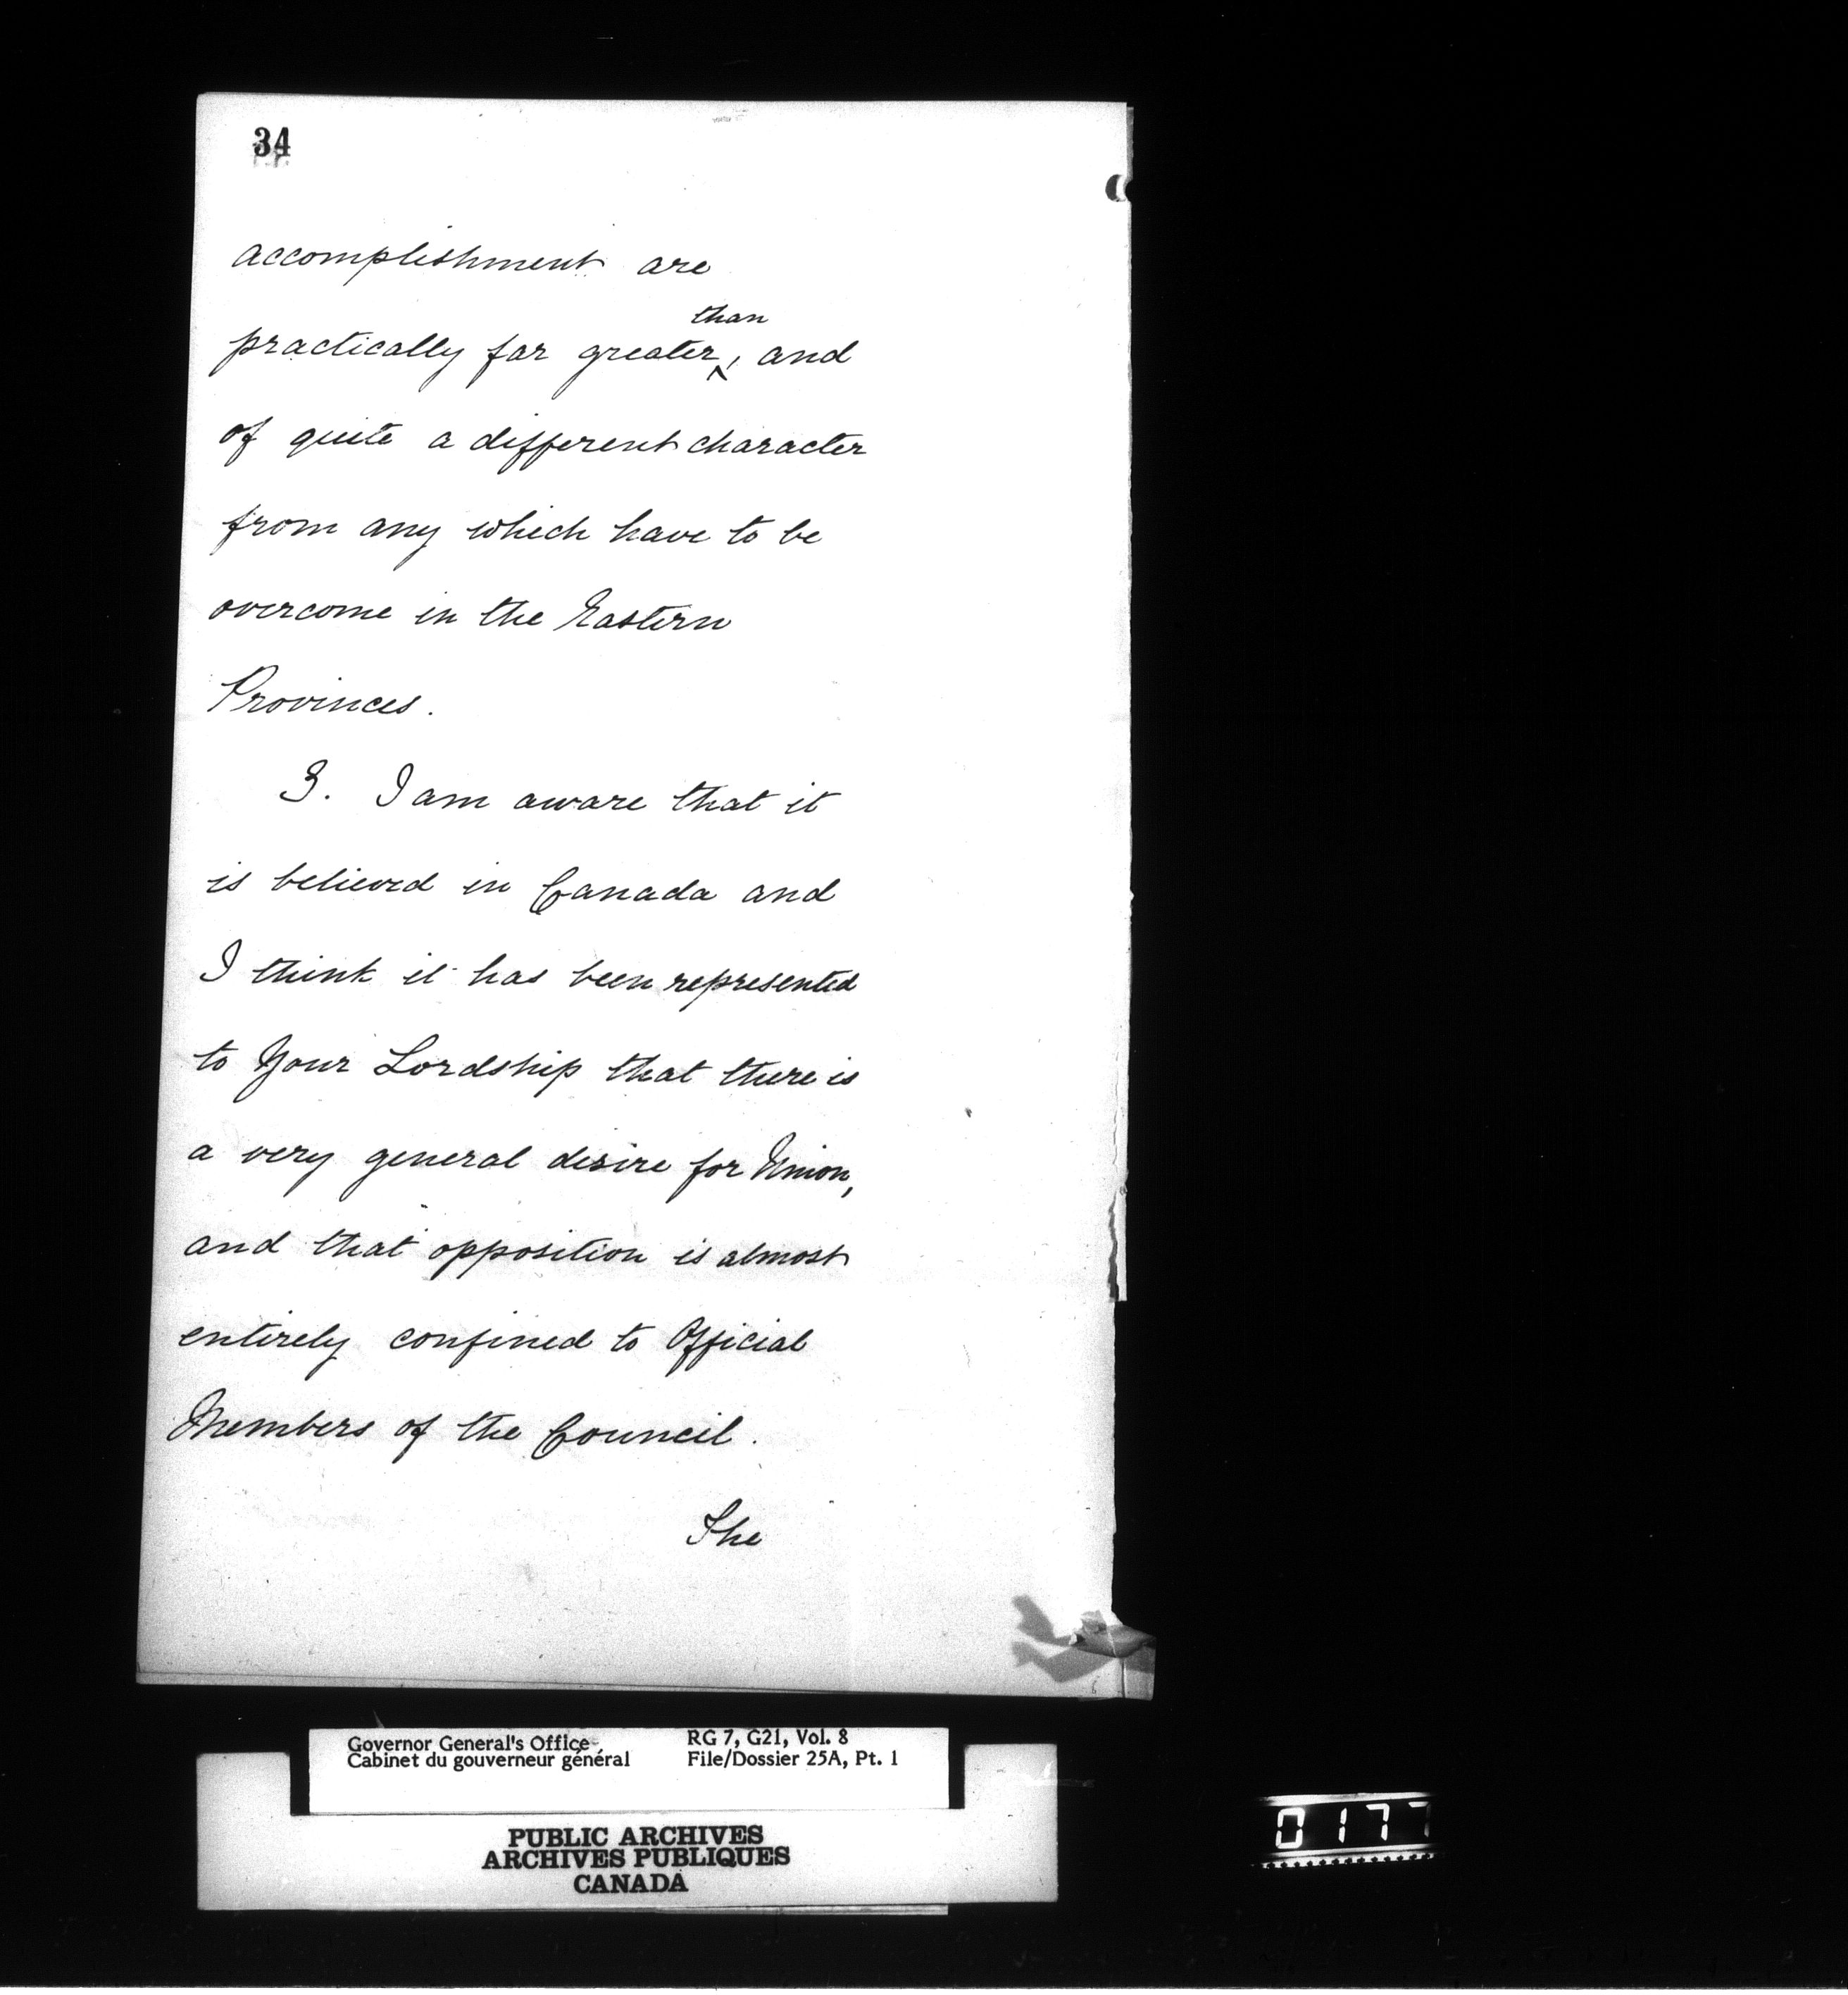 34
accomplishment are
than
practically far greater, and
of quite a different character
from any which have to be
overcome in the Eastern
Provinces.
3. I am aware that it
is believed in Canada and
I think it has been represented
to Your Lordship that there is
a very general desire for Union,
and that opposition is almost
entirely confined to Official
Members of the Council.
The
Governor General's Office RG 7, G21, Vol. 8
Cabinet du gouverneur général File/Dossier 25A, Pt. 1
PUBLIC ARCHIVES
ARCHIVES PUBLIQUES
CANADA
0177